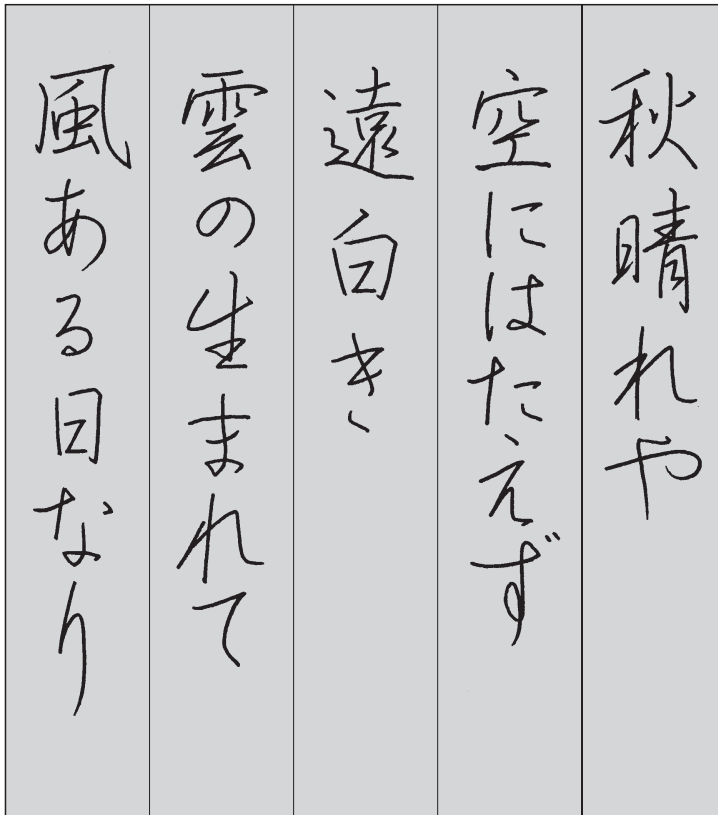 秋晴れや
空にはたえず
遠白き
雲の生まれて
風ある日なり